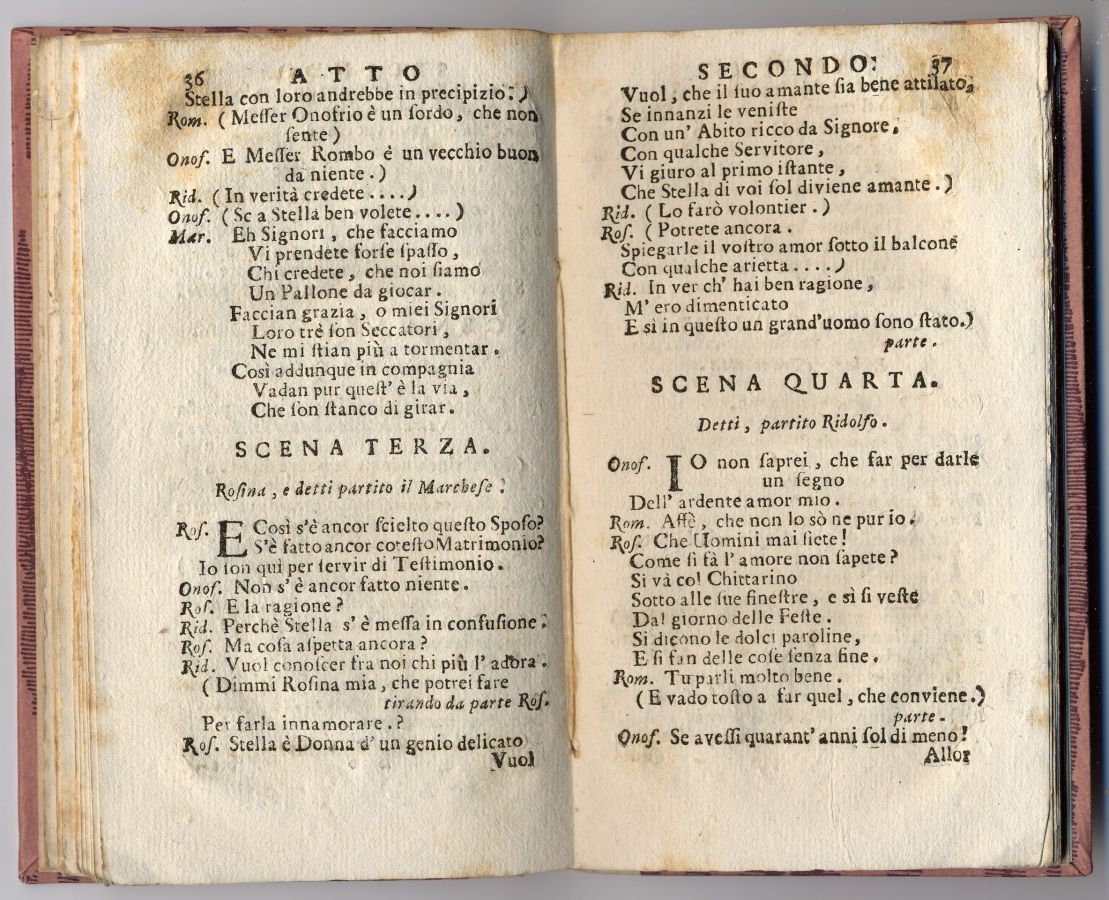 36 ATTO
Stella con loro andrebbe in precipizio.)
Rom. (Meſſer Onofrio è un ſordo, che non
ſente)
Onof. E Meſſer Rombo è un vecchio buon
da niente.)
Rid. (In verità credete....)
Onof. (Se a Stella ben volete....)
Mar. Eh Signori, che facciamo
Vi prendete forſe ſpaſſo,
Chi credete, che noi ſiamo
Un Pallone da giocar.
Faccian grazia, o miei Signori
Loro trè ſon Seccatori,
Ne mi ſtian più a tormentar.
Così addunque in compagnia
Vadan pur queſt' è la via,
Che ſon ſtanco di girar.
SCENA TERZA.
Roſina, e detti partito il Marcheſe.
Roſ. E Così s'è ancor ſcielto queſto Spoſo?
S'è fatto ancor coteſto Matrimonio?
Io ſon qui per ſervir di Teſtimonio.
Onof. Non s' è ancor fatto niente.
Roſ. E la ragione?
Rid. Perchè Stella s' è meſſa in confuſione.
Roſ. Ma coſa aſpetta ancora?
Rid. Vuol conoſcer fra noi chi più l' adora.
(Dimmi Roſina mia, che potrei fare
tirando da parte Roſ.
Per farla innamorare.?
Roſ. Stella è Donna d' un genio delicato
Vuol
SECONDO. 37
Vuol, che il ſuo amante ſia bene attilato,
Se innanzi le veniſte
Con un' Abito ricco da Signore,
Con qualche Servitore,
Vi giuro al primo iſtante,
Che Stella di voi ſol diviene amante.)
Rid. (Lo farò volontier.)
Roſ. (Potrete ancora.
Spiegarle il voſtro amor ſotto il balcone
Con qualche arietta....)
Rid. In ver ch' hai ben ragione,
M' ero dimenticato
E sì in queſto un grand'uomo ſono ſtato.)
parte.
SCENA QUARTA.
Detti, partito Ridolfo.
Onof. IO non ſaprei, che far per darle
un ſegno
Dell' ardente amor mio.
Rom. Affè, che non lo sò ne pur io.
Roſ. Che Uomini mai ſiete!
Come ſi fà l' amore non ſapete?
Si và col Chittarino
Sotto alle ſue fineſtre, e sì ſi veſte
Dal giorno delle Feſte.
Si dicono le dolci paroline,
E ſi fan delle coſe ſenza fine.
Rom. Tu parli molto bene.
(E vado toſto a far quel, che conviene.)
parte.
Onof. Se aveſſi quarant' anni ſol di meno!
Allor